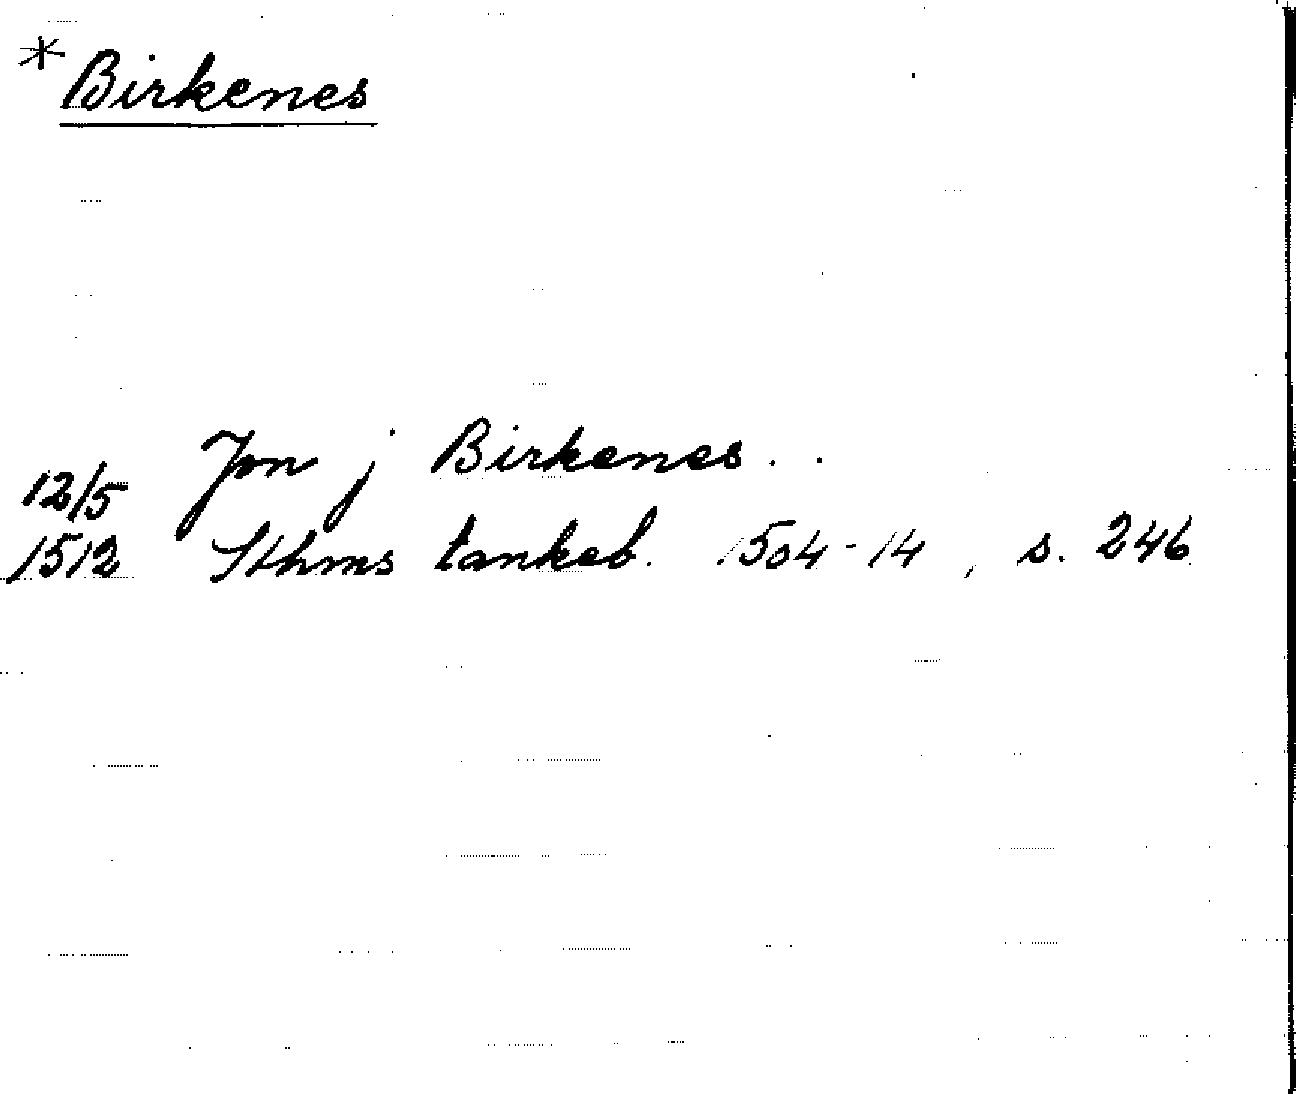 * Birkenes
Jon j Birkenes . .
12/5
1512 Sthms tankeb. 1504-14, s. 246